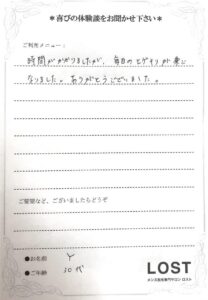 ＊喜びの体験談をお聞かせ下さい＊
ご利用メニュー：
時間がかかりましたが、毎日のヒゲソリが楽に
なりました。ありがとうございました。
ご要望など、ございましたらどうぞ
●お名前 Y
●ご年齢 20代
LOST
メンズ脱毛専門サロン ロスト